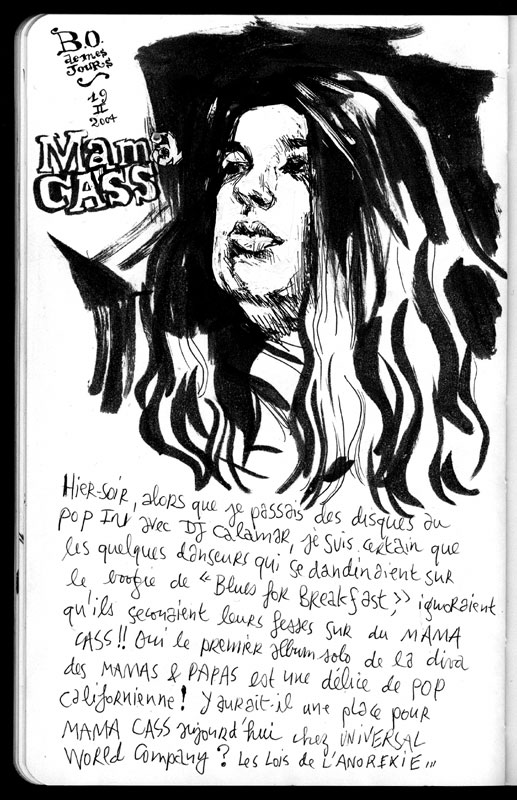 B.O.
de mes
JOURS
19
II
2004
Mama
CASS
Hier-soir, alors que je passais des disques au
POP IN avec DJ Calamar, je suis certain que
les quelques danseurs qui se dandinaient sur
le boogie de "Blues for Breakfast," ignoraient
qu'ils secouaient leurs fesses sur du MAMA
CASS!! Oui le premier album solo de la diva
des MAMAS & PAPAS est une délice de POP
californienne! Y aurait-il une place pour
MAMA CASS aujourd'hui chez UNIVERSAL
World Company? Les Lois de L'ANOREXIE...